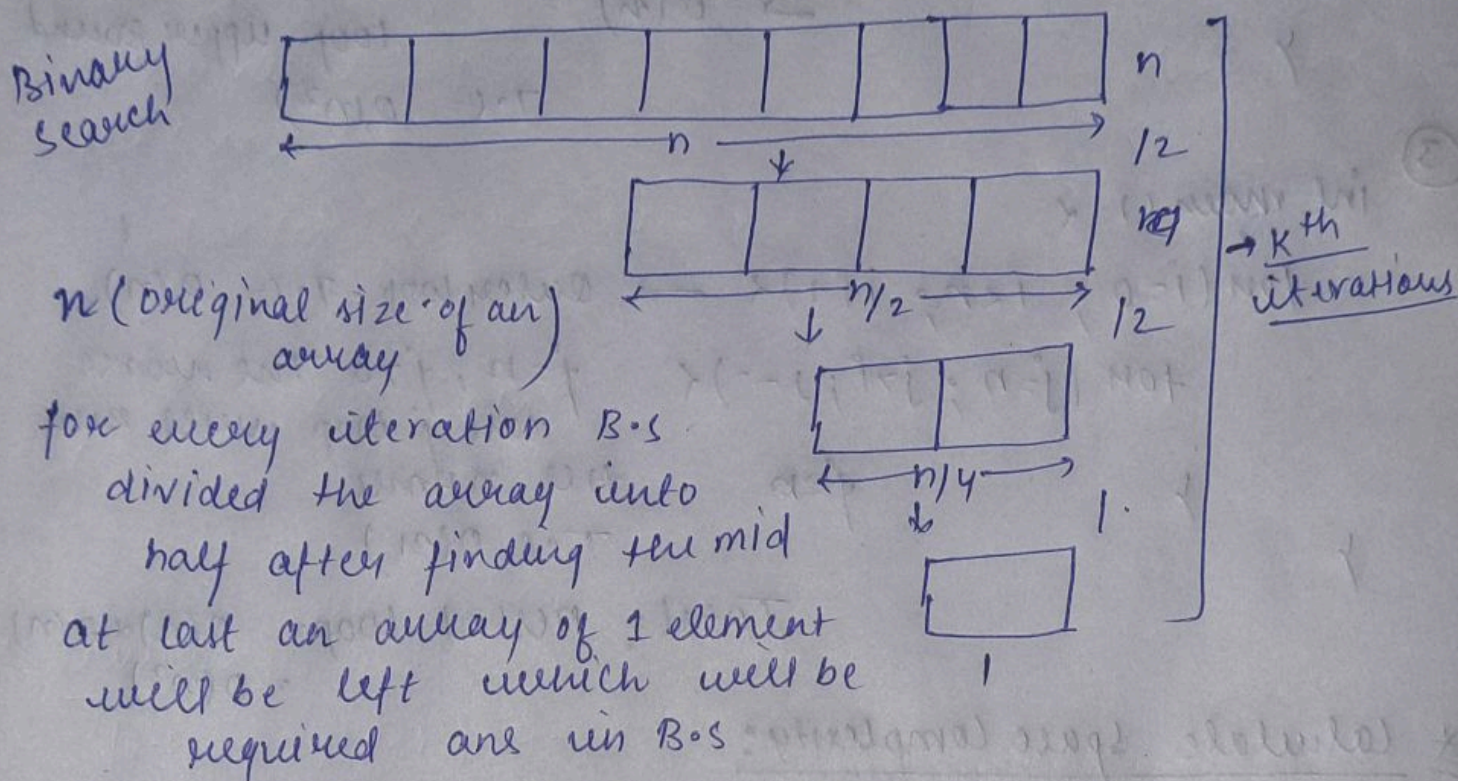 Binary
search
n
n
/2
n/2
/2
→ Kth
iterations
n (original size of an
array)
for every iteration B.S
divided the array into
half after finding the mid
at last an array of 1 element
will be left which will be
required ans in B.S
n/4
1.
1
3